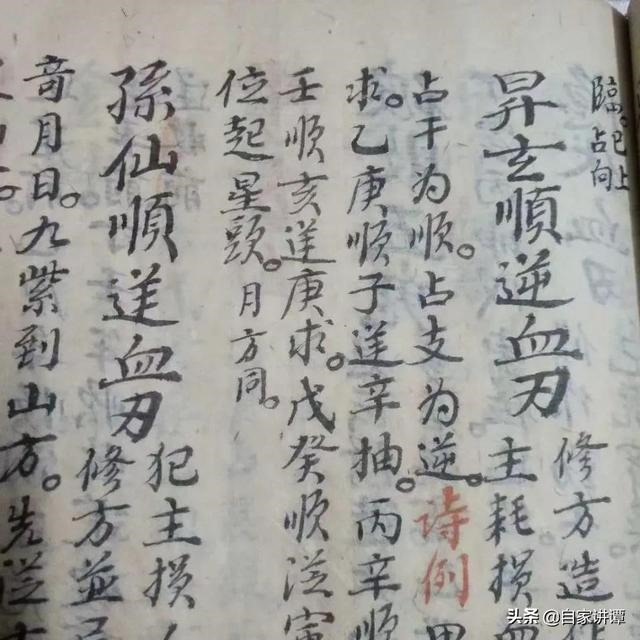 臨。已上
占向
昇玄順逆血刃
修方造
主耗損血
占干为順。占支为逆。诗例
求。乙庚順子逆辛抽。丙辛順
壬順亥逆庚求。戊癸順從寅
位起星頭。月方同。
孫仙順逆血刃
犯主損人
修方並忌
音月日。九紫到山方。先從
头条 @自家讲谭